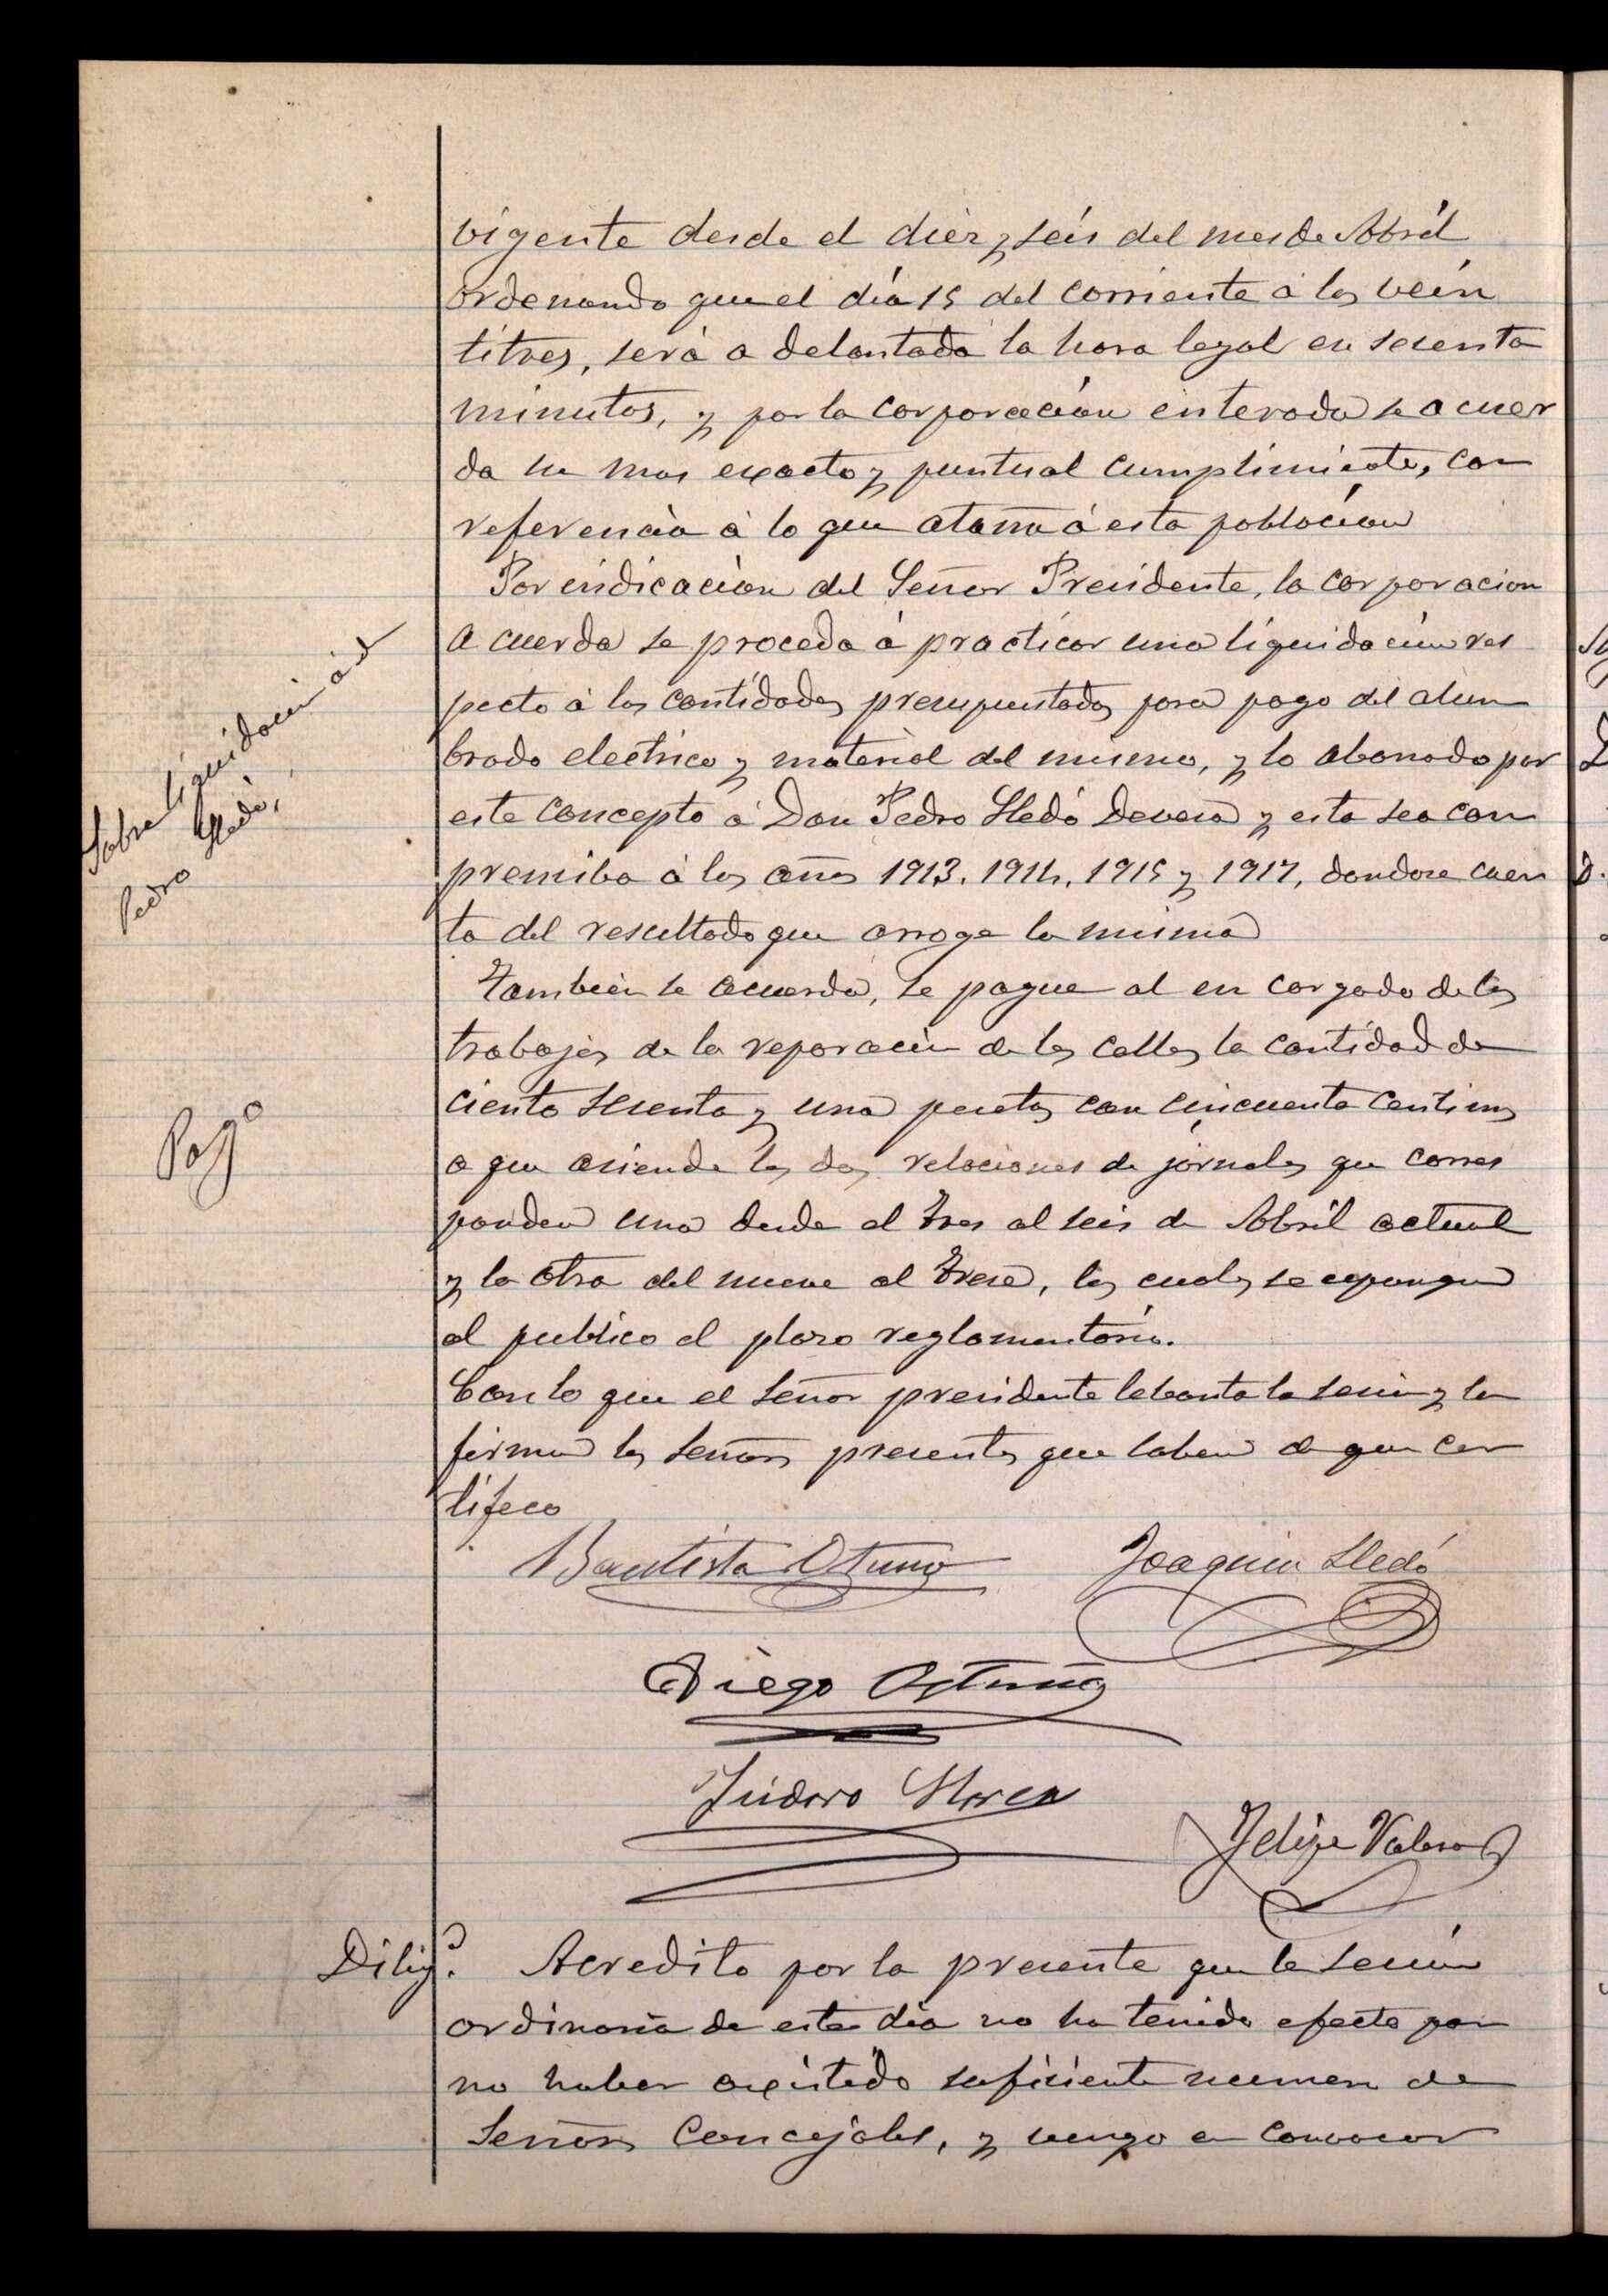 vigente desde el diez y seis del mes de Abril
ordenando que el día 15 del corriente á las vein
titres, será a delantada la hora legal en sesenta
minutos, y por la corporacion enterada se a cuer
da su mas exacto y puntual cumplimiento, con
referencia á lo que atañe á esta poblacion
Por indicacion del Señor Presidente, la corporacion
a cuerda se proceda á practicar una liquidacion res
pecto á las cantidades presupuestadas para pago del alum
brado electrico y material del mismo, y lo abonado por
este concepto á Don Pedro Lledó Devesa y esta sea com
premiba á los años 1913. 1914. 1915 y 1917, dandose cuen
ta del resultado que arroge la misma
Sobre liquidacion á d
Pedro Lledó,
Tambien se acuerda, se pague al en cargado de los
trabajos de la reparacion de las calles la cantidad de
ciento sesenta y una pesetas con cincuenta centimos
a que asiende las dos relaciones de jornales que corres
ponden una desde el tres al seis de Abril actual
y la otra del nueve al trese, las cuales se expongan
al publico el plazo reglamentario.
Pago
Con lo que el Señor presidente lebanta la sesion y la
firman los señores presentes que saben de que cer
tifico
Bautista Ortuño Joaquin Lledó
Diego Ortuño
Isidoro Llorca
Felipe Valero
Dilig.ª Acredito por la presente que la sesion
ordinaria de este dia no ha tenido efecto por
no haber axistido suficiente numero de
Señores Concejales, y vengo en convocar